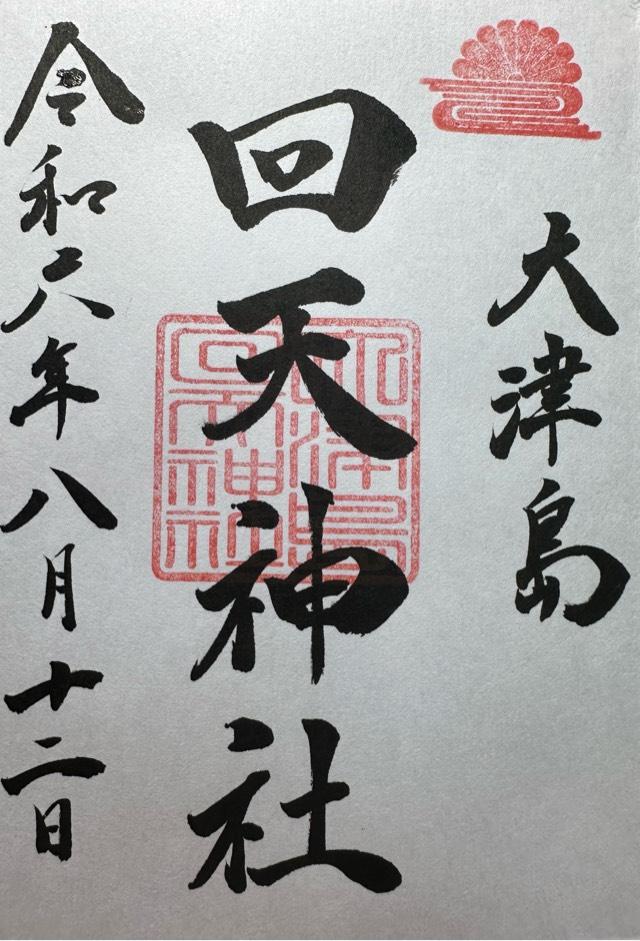 大津島
回天神社
令和六年八月十二日
大津島
回天神社